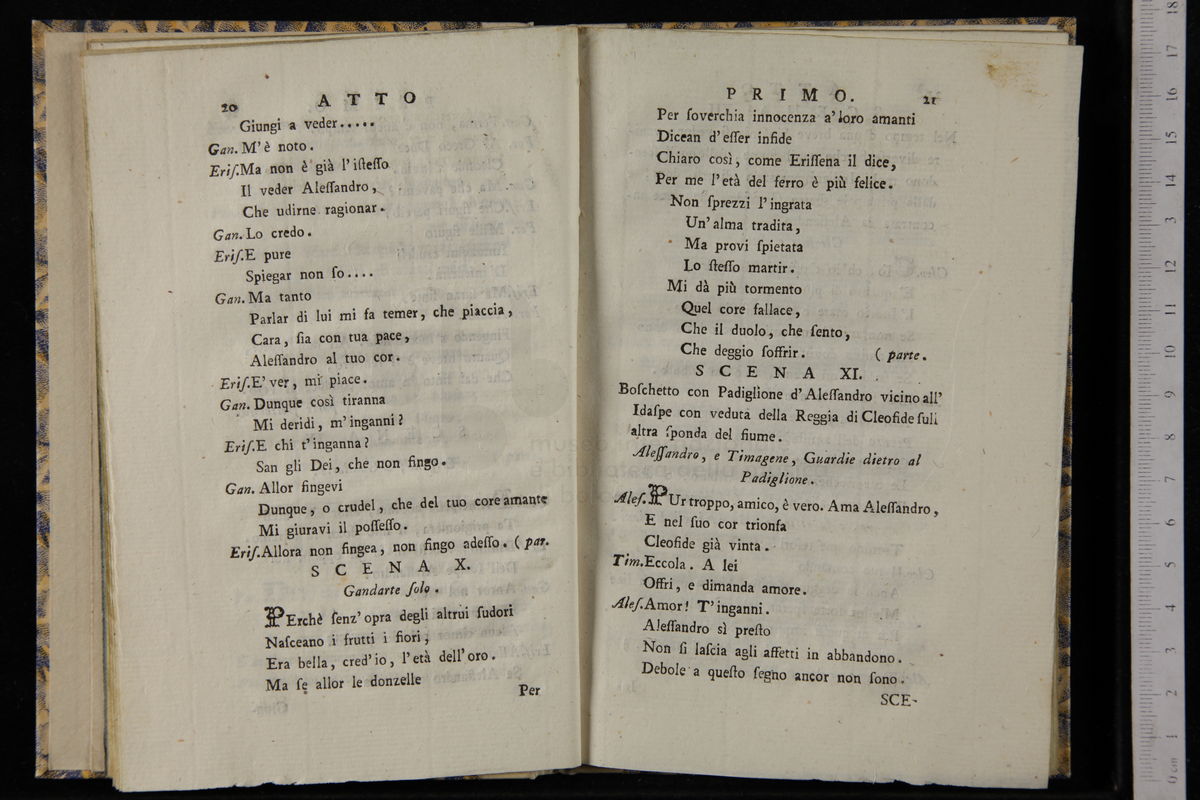 20 ATTO
Giungi a veder.....
Gan. M'è noto.
Eriſ. Ma non è già l'iſteſſo
Il veder Aleſſandro,
Che udirne ragionar.
Gan. Lo credo.
Eriſ. E pure
Spiegar non ſo....
Gan. Ma tanto
Parlar di lui mi fa temer, che piaccia,
Cara, ſia con tua pace,
Aleſſandro al tuo cor.
Eriſ. E' ver, mi piace.
Gan. Dunque così tiranna
Mi deridi, m'inganni?
Eriſ. E chi t'inganna?
San gli Dei, che non fingo.
Gan. Allor fingevi
Dunque, o crudel, che del tuo core amante
Mi giuravi il poſſeſſo.
Eriſ. Allora non fingea, non fingo adeſſo. (par.
SCENA X.
Gandarte ſolo.
PErchè ſenz'opra degli altrui ſudori
Naſceano i frutti i fiori,
Era bella, cred'io, l'età dell'oro.
Ma ſe allor le donzelle
Per
PRIMO. 21
Per ſoverchia innocenza a'loro amanti
Dicean d'eſſer infide
Chiaro così, come Eriſſena il dice,
Per me l'età del ferro è più felice.
Non ſprezzi l'ingrata
Un'alma tradita,
Ma provi ſpietata
Lo ſteſſo martir.
Mi dà più tormento
Quel core fallace,
Che il duolo, che ſento,
Che deggio ſoffrir. (parte.
SCENA XI.
Boſchetto con Padiglione d'Aleſſandro vicino all'
Idaſpe con veduta della Reggia di Cleofide ſull
altra ſponda del fiume.
Aleſſandro, e Timagene, Guardie dietro al
Padiglione.
Aleſ. PUr troppo, amico, è vero. Ama Aleſſandro,
E nel ſuo cor trionfa
Cleofide già vinta.
Tim. Eccola. A lei
Offri, e dimanda amore.
Aleſ. Amor! T'inganni.
Aleſſandro sì preſto
Non ſi laſcia agli affetti in abbandono.
Debole a queſto ſegno ancor non ſono.
SCE-